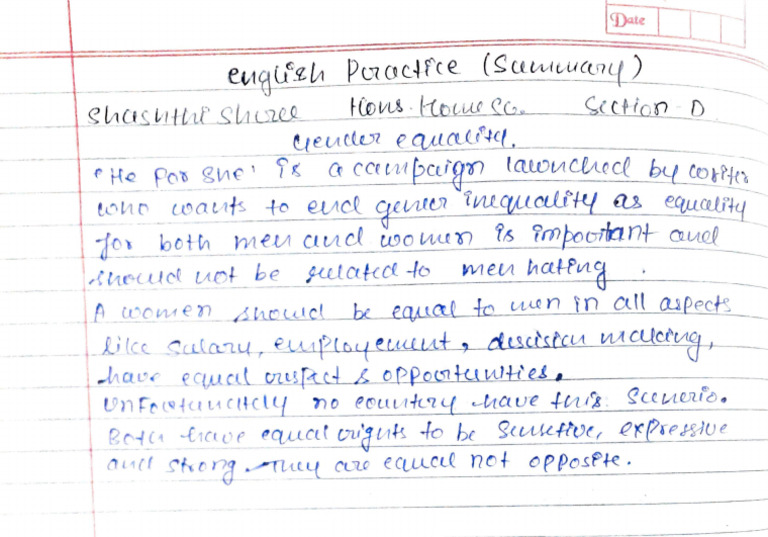 Date
English Practice (Summary)
Shashthi Shree Hons. Home Sc. Section - D
Gender equality.
"He For She" is a campaign launched by writer
who wants to end gener inequality as equality
for both men and women is important and
should not be related to men hating.
A women should be equal to men in all aspects
like salary, employement, descision making,
have equal respect & oppoortunities.
Unfortunately no country have this Scenerio.
Both have equal rights to be Senstive, expressive
and strong. They are equal not opposite.